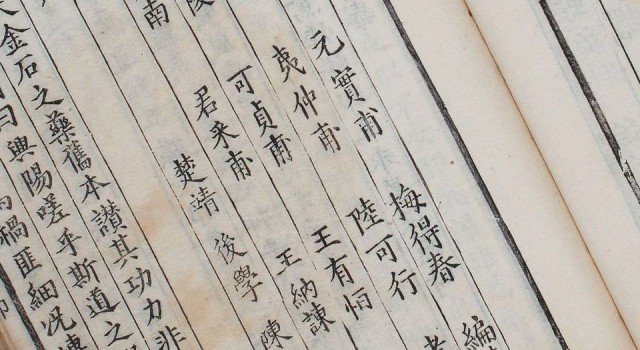 元實甫 梅得春 編
夷仲甫 陸可行
陵 可貞甫 王有
南 君采甫 王納諫
楚靖 後學 陳
金石之藥舊本讚其功力非
曰與陽嗟乎斯道之
禍匪細况